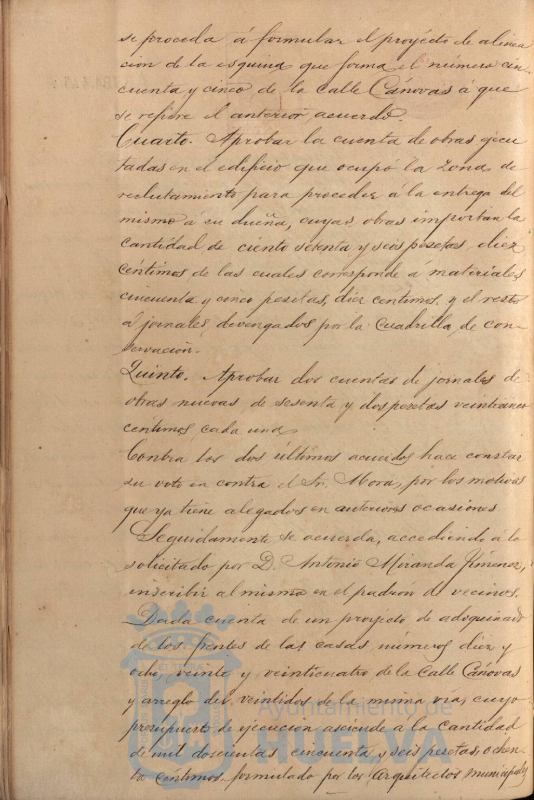 se proceda á formular el proyécto de alinea
ción de la esquina que forma el número cin
cuenta y cinco de la calle Cánovas á que
se refiere el anterior acuerdo.
Cuarto. Aprobar la cuenta de obras ejecu
tadas en el edificio que ocupó la Zona de
reclutamiento para proceder á la entrega del
mismo á su dueña, cuyas obras importan la
cantidad de ciento setenta y seis pesetas, diez
céntimos de las cuales corresponde a materiales
cincuenta y cinco pesetas, diez centimos, y el resto
á jornales devengados por la Cuadrilla de con-
servación.
Quinto. Aprobar dos cuentas de jornales de
obras nuevas de sesenta y dos pesetas
centimos, cada una
Contra los dos últimos acuerdos hace constar
su voto en contra el Sr. Mora, por los motivos
que ya tiene alegados en anteriores ocasiones.
Seguidamente se acuerda, accediendo á lo
solicitado por D. Antonio Miranda Jimenez,
inscribir al mismo en el padrón de vecinos.
Dada cuenta de un proyecto de adoquinado
de los frentes de las casas números diez y
ocho, veinte y veinticuatro de la Calle Cánovas
y arreglo del veintidos de la misma vía, cuyo
presupuesto de ejecución asciende a la cantidad
de mil doscientas cincuenta y seis pesetas, ochen
ta centimos formulado por los Arquitectos municipales
Ayuntamiento de
HUELVA